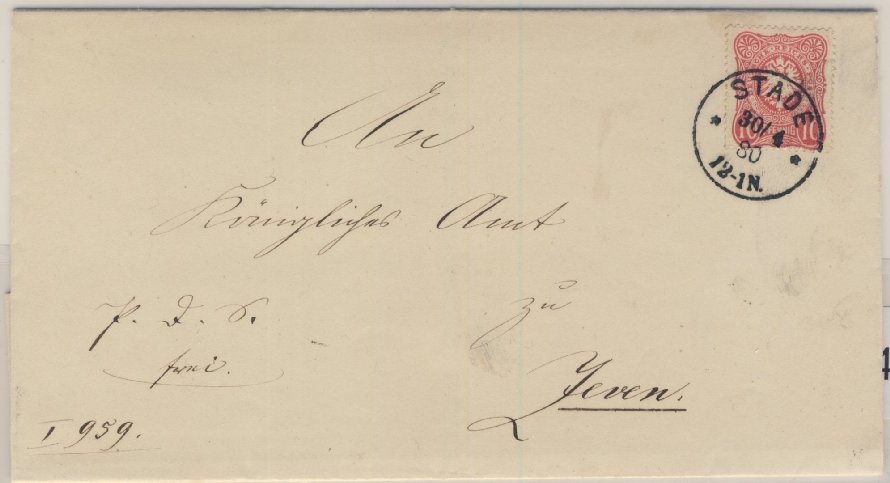 STADE
30/4
80
12-1N.
10 10
An
Königliches Amt
zu
Zeven.
P. D. S.
frei.
I 959.